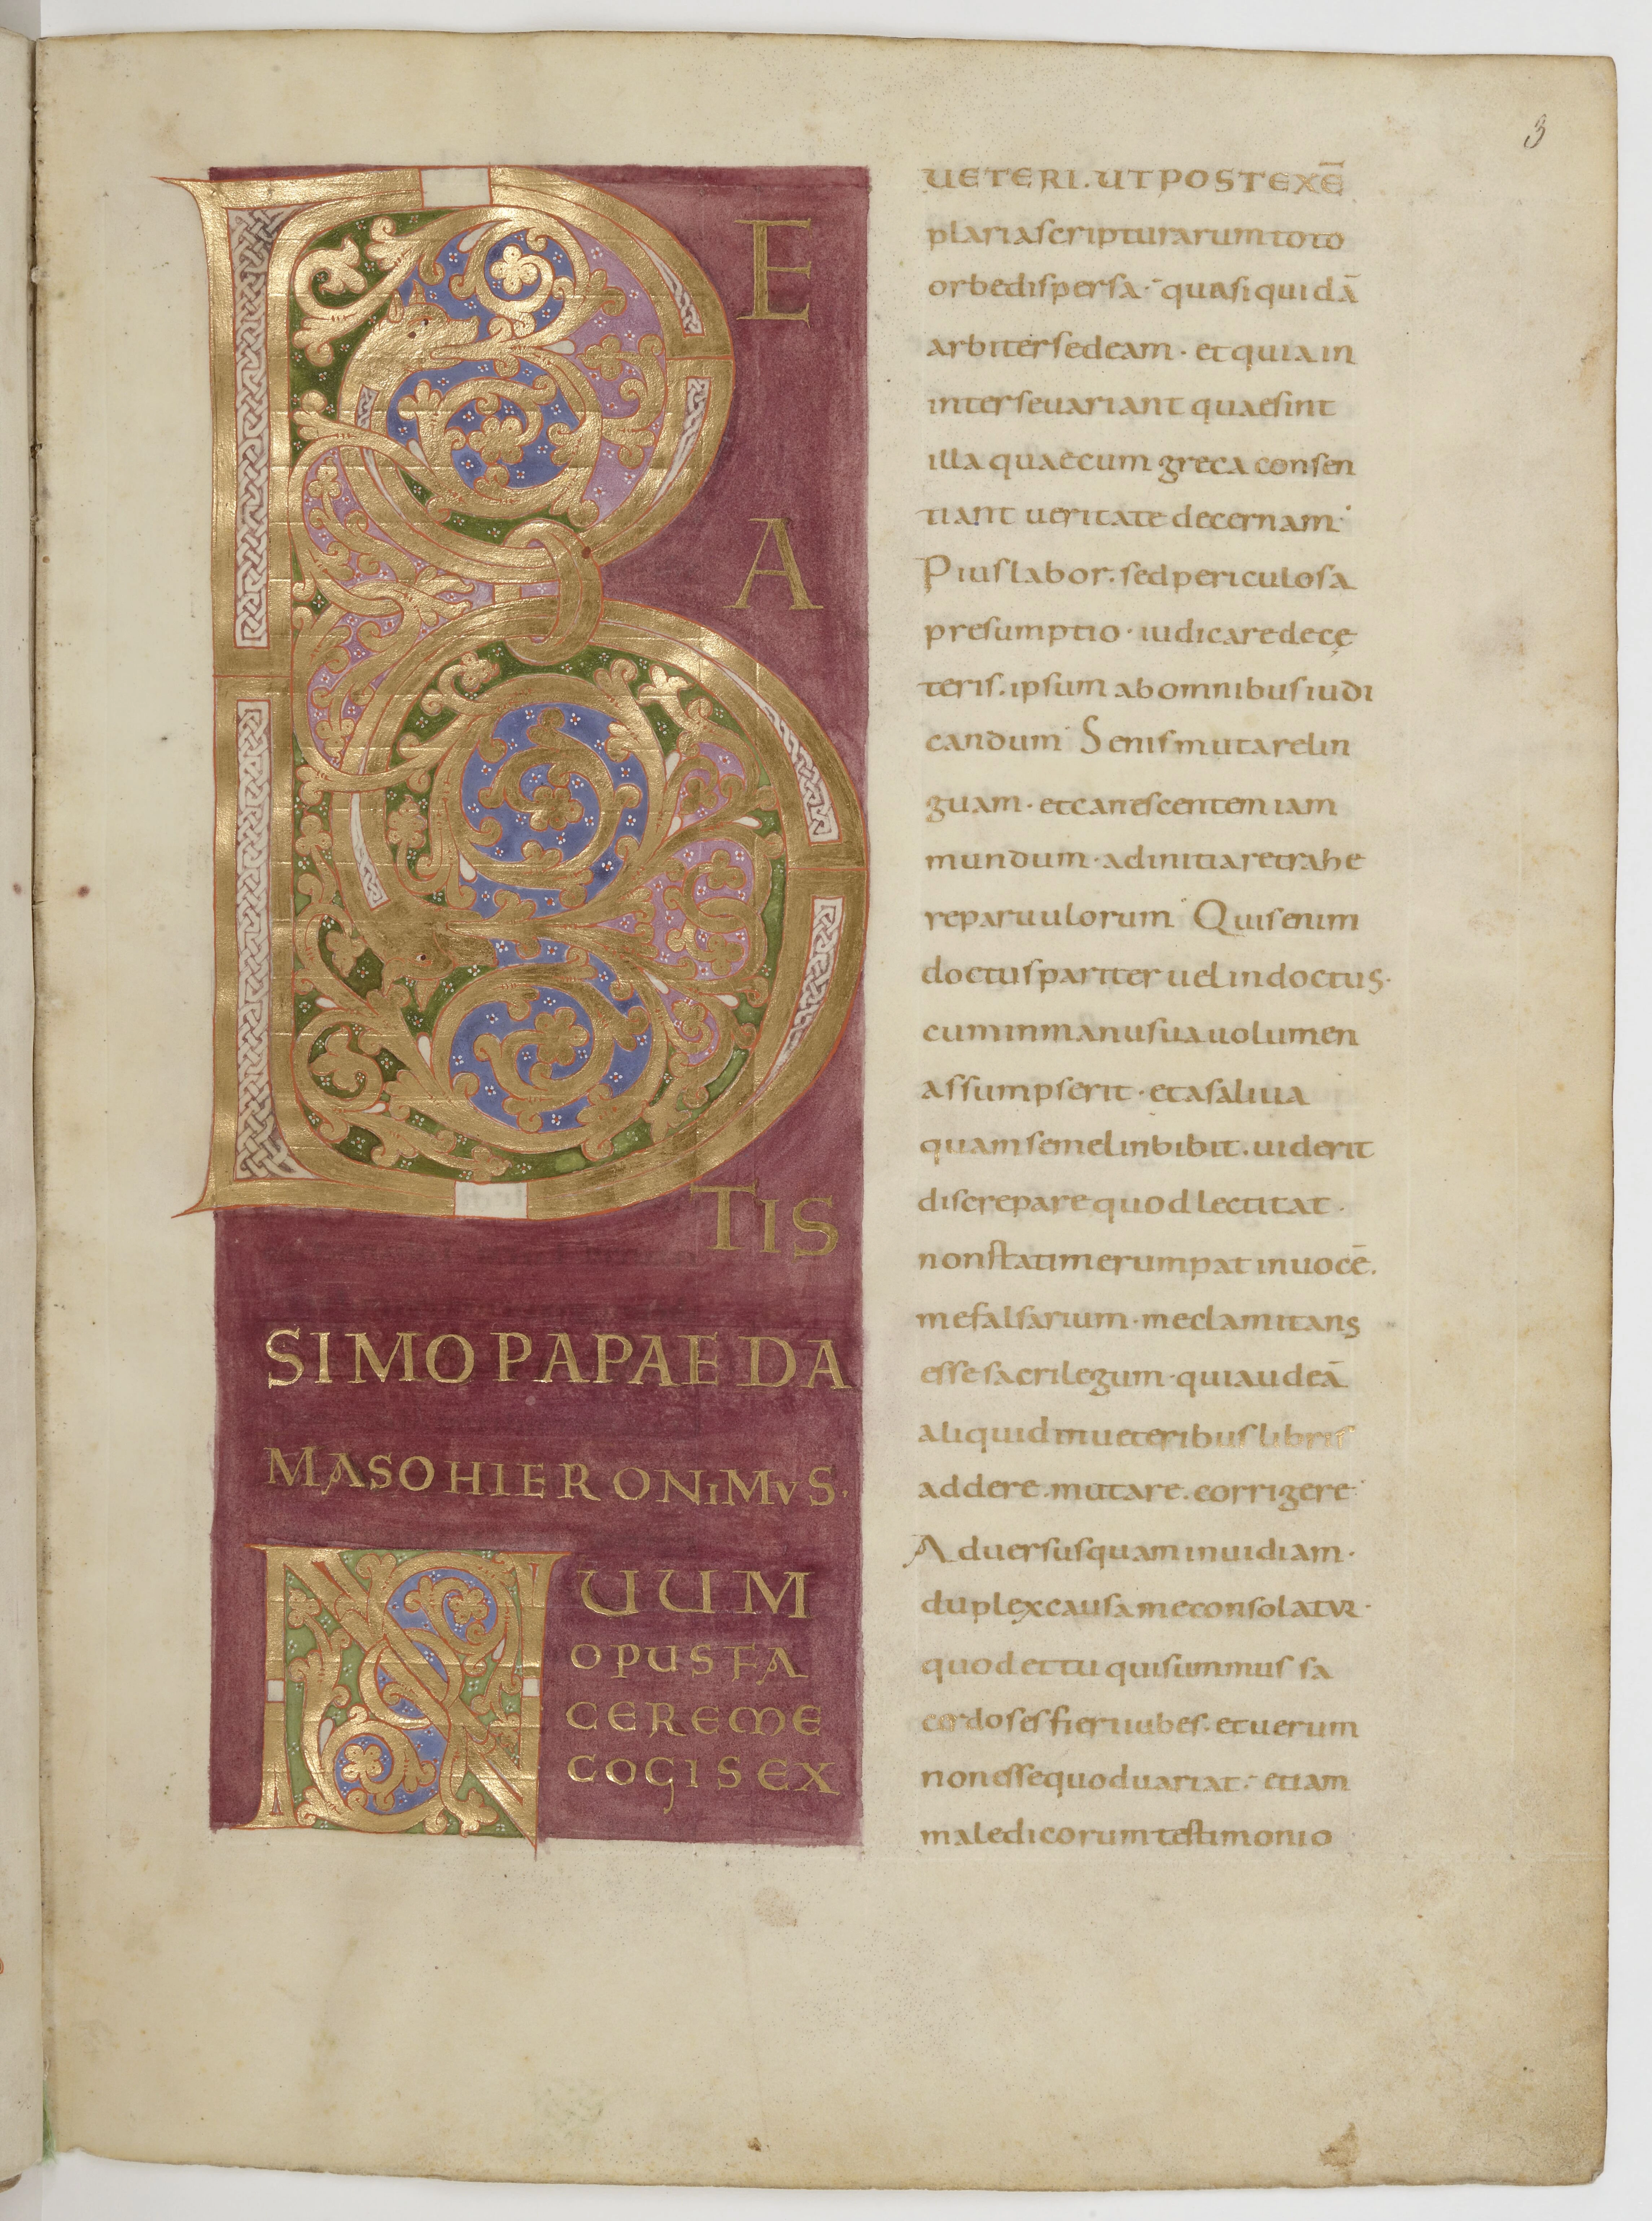 3
BEA
TIS
SIMO PAPAE DA
MASO HIERONIMVS.
NUUM
OPUS FA
CERE ME
COGIS EX
UETERI. UT POST EXĒ
plaria scripturarum toto
orbe dispersa· quasi quidā
arbiter sedeam· et quia in
inter se uariant quae sint
illa quae cum greca consen
tiant ueritate decernam·
Pius labor. sed periculosa
presumptio· iudicare de cę
teris. ipsum ab omnibus iudi
candum· Senis mutare lin
guam· et canescentem iam
mundum· ad initia retrahe
re paruulorum· Quis enim
doctus pariter uel indoctus·
cum in manu sua uolumen
assumpserit· et a saliua
quam semel inbibit. uiderit
discrepare quod lectitat·
non statim erumpat in uocē.
me falsarium· me clamitans
esse sacrilegum· qui audeā
aliquid in ueteribus libris
addere. mutare. corrigere·
Aduersus quam inuidiam·
duplex causa me consolatur·
quod et tu qui summus sa
cerdos es fieri iubes· et uerum
non esse quod uariat· etiam
maledicorum testimonio